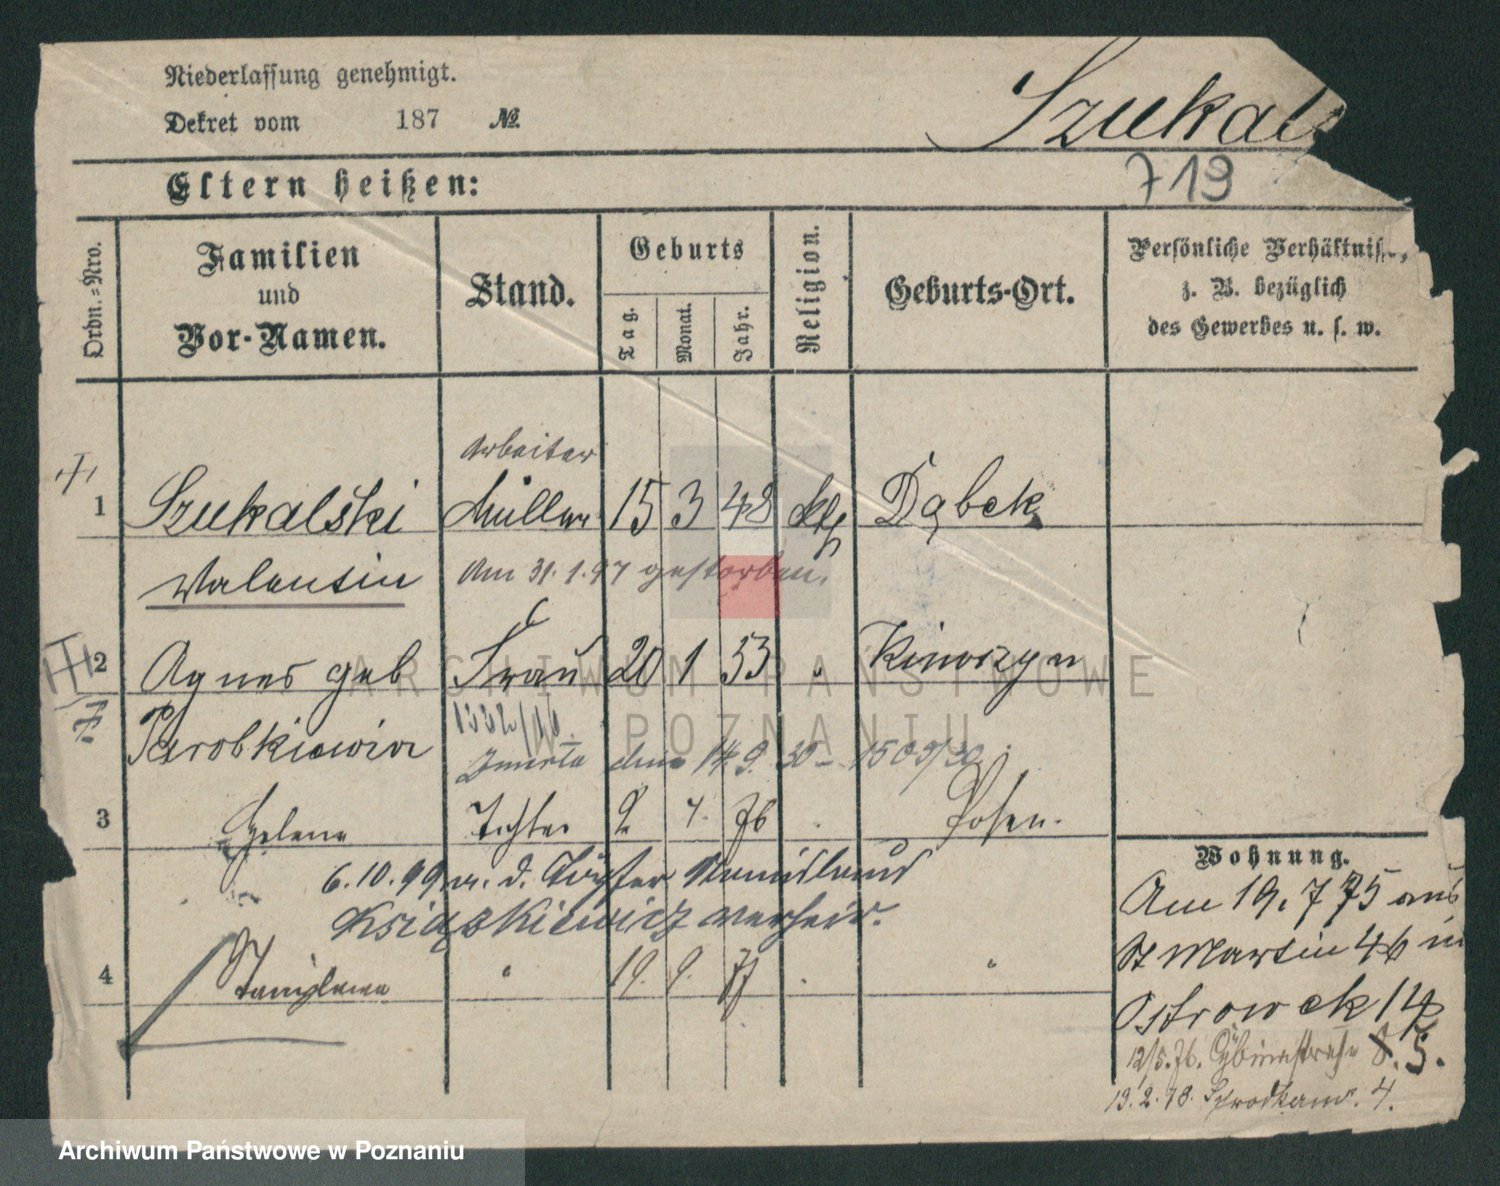 Niederlassung genehmigt.
Dekret vom 187 №.
Szukals
719
Eltern heißen:
Ordn.=Nro.
Familien
und
Vor-Namen.
Stand.
Geburts
Tag.
Monat.
Jahr.
Religion.
Geburts-Ort.
Persönliche Verhältniss
z. B. bezüglich
des Gewerbes u. s. w.
Arbeiter
1 Szukalski Müller 15 3 48 kth Dąbek
Valentin Am 31.1.97 gestorben.
2 Agnes geb Frau 20 1 53 " Kinoszyn
Parobkiewicz
Zmarła dnia 14 9. 30 – 1503/30.
3 Helene Tochter 2 7. 76 Posen.
6.10.99 m. d. Töpfer Stanislaus
Książkiewicz verheir.
4 Stanislawa " 19. 9. 77 "
Wohnung.
Am 19.7 75 aus
St Martin 46 in
Ostrowek 14
12/5.76. Cybinastraße 5.
13.2.78. Schrodkamr. 4.
ARCHIWUM PAŃSTWOWE
W POZNANIU
Archiwum Państwowe w Poznaniu